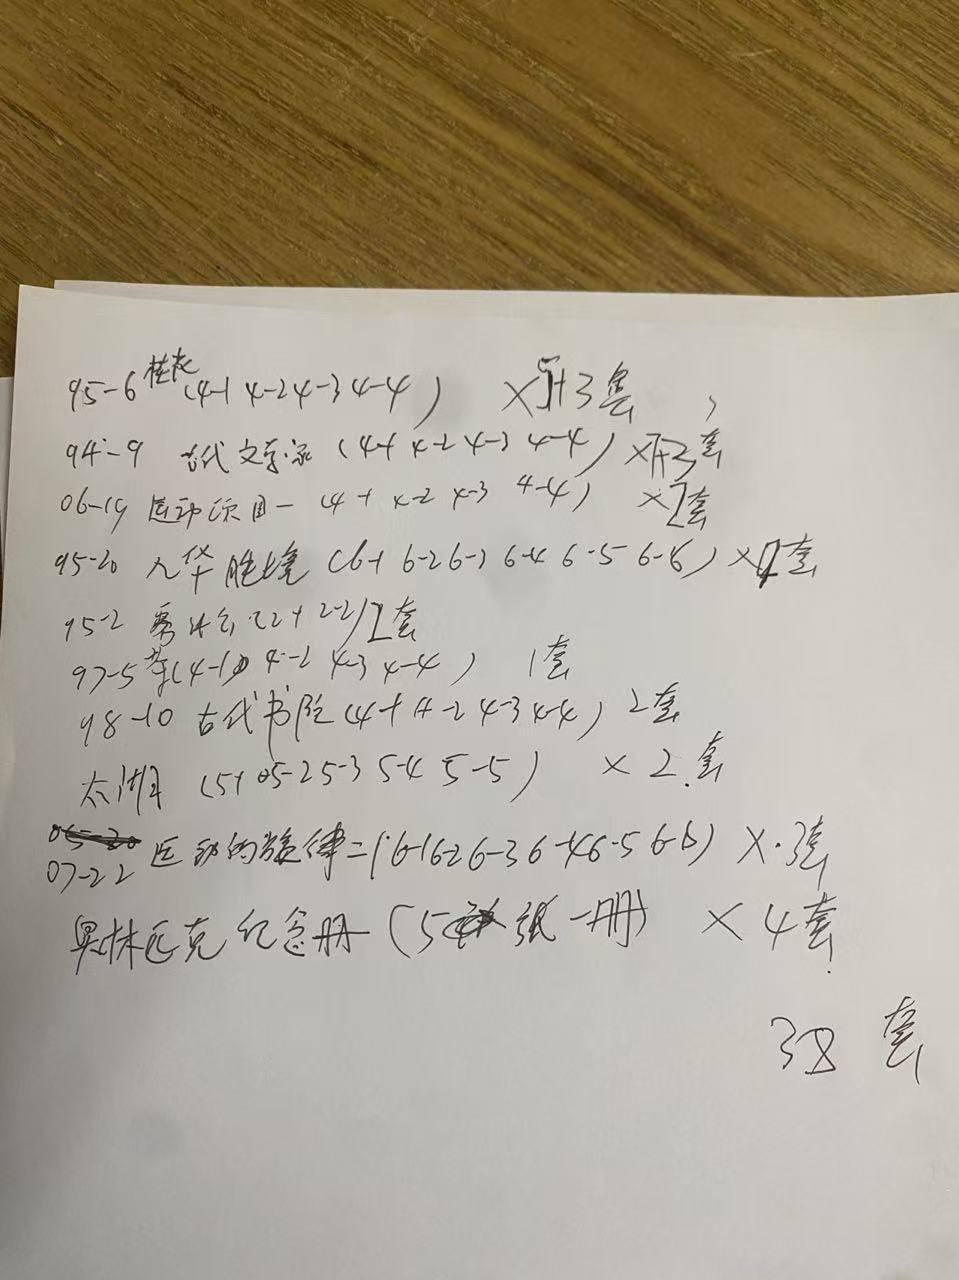 95-6 桂花 (4-1 4-2 4-3 4-4) ×5+3套
94-9 古代文学家 (4-1 4-2 4-3 4-4) ×3套
06-19 运动项目一 (4-1 4-2 4-3 4-4) ×2套
95-20 九华胜境 (6-1 6-2 6-3 6-4 6-5 6-6) × 套
95-2 (2-1 2-2) 2套
97-5 茶(4-1 4-2 4-3 4-4) 1套
98-10 古代书院 (4-1 4-2 4-3 4-4) 2套
太湖 (5-1 5-2 5-3 5-4 5-5) × 2.套
07-22 运动的旋律二(6-1 6-2 6-3 6-4 6-5 6-6) × 3套
奥林匹克纪念册 (5 张一册) × 4套
38 套